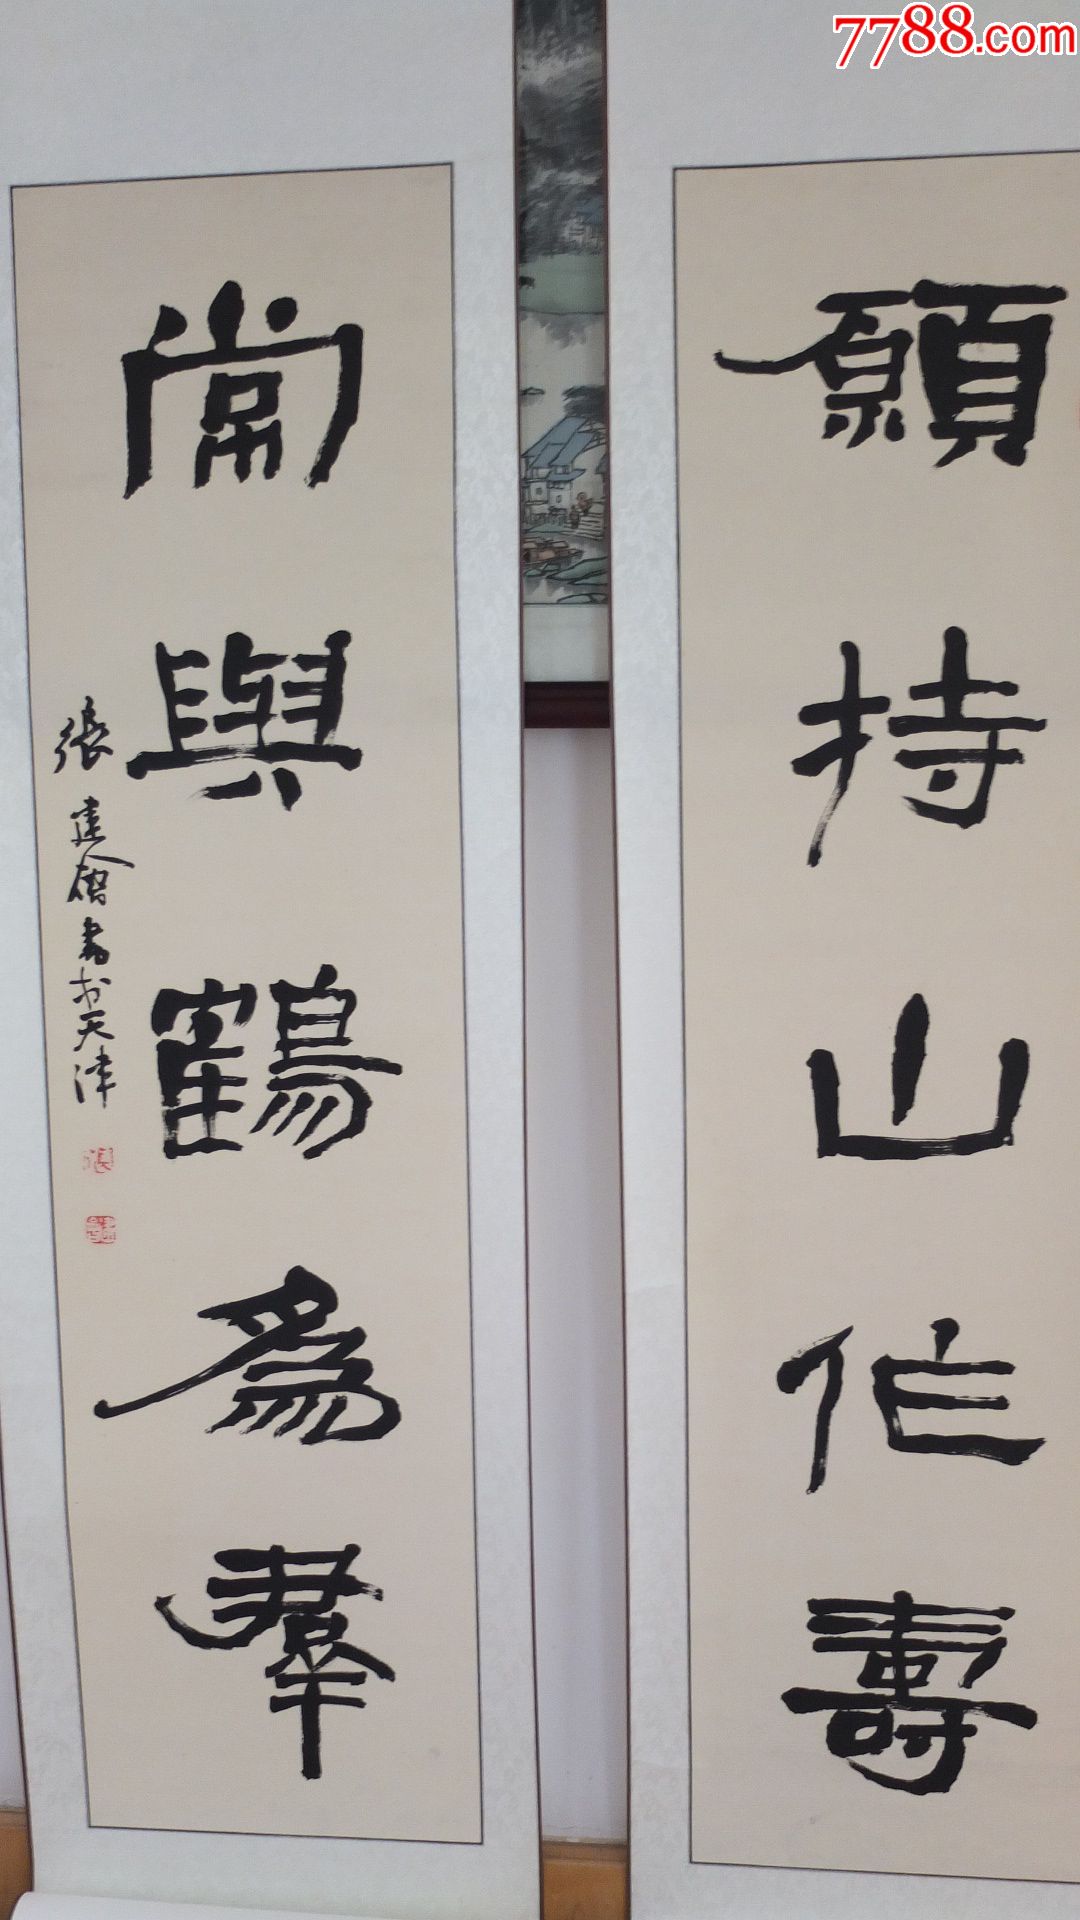 7788.com
願持山作壽
常與鶴為羣
張建會書於天津
張